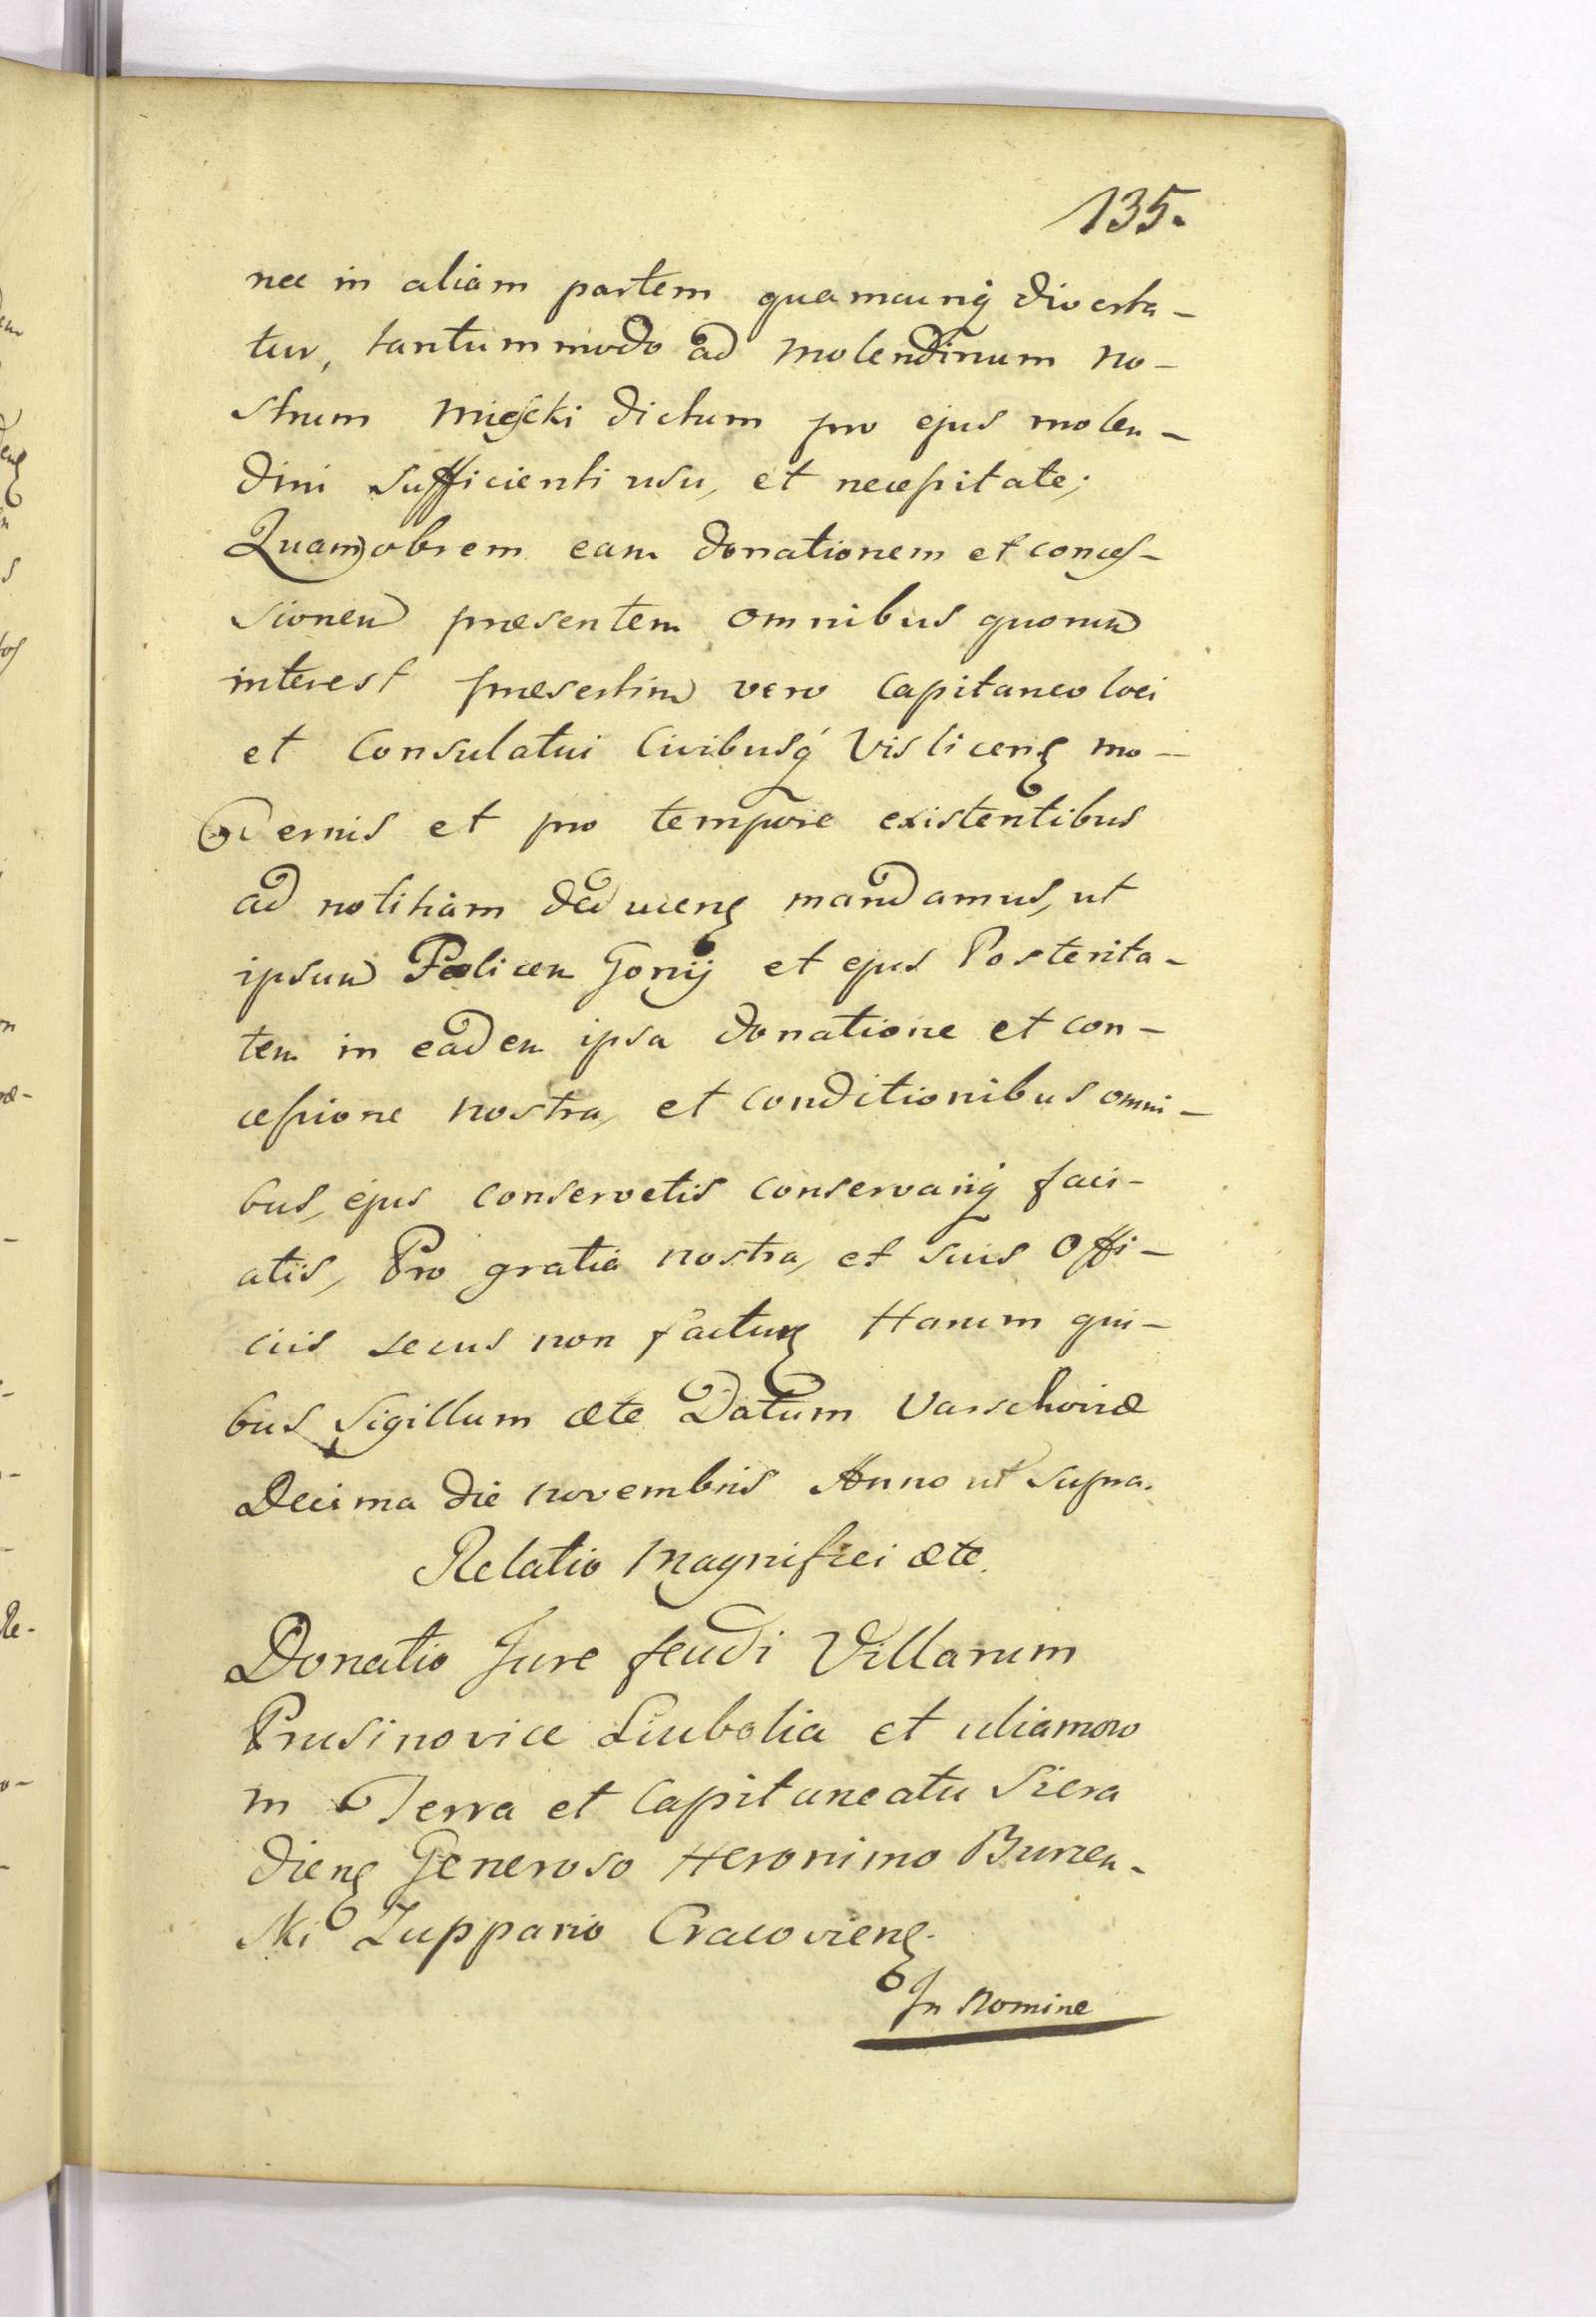 135.
nec in aliam partem quamcunq́ diverta-
tur, tantummodo ad molendinum no-
strum Mieſcki dictum pro ejus molen-
dini sufficienti usu, et neceſsitate;
Quamobrem eam donationem et conceſ-
sionem præsentem omnibus quorum
interest præsertim vero Capitaneo loci
et Consulatui Civibusq́ Vislicenꝭ mo-
dernis et pro tempore existentibus
ad notitiam deducenꝭ mandamus, ut
ipsum Felicem Gorỹ et ejus Posterita-
tem in eadem ipsa donatione et con-
ceſsione nostra, et conditionibus omni-
bus, ejus conservetis conservariq́ faci-
atis, Pro gratia nostra, et suis Offi-
ciis secus non facturꝭ Harum qui-
bus Sigillum etc Datum Varschoviæ
Decima die novembris Anno ut supra.
Relatio Magnifici etc.
Donatio Jure feudi Villarum
Prusinovice Liubolia et uliamow
in Terra et Capitaneatu Siera
dienꝭ Generoso Heronimo Buzen-
ski Zuppario Cracovienꝭ.
In Nomine